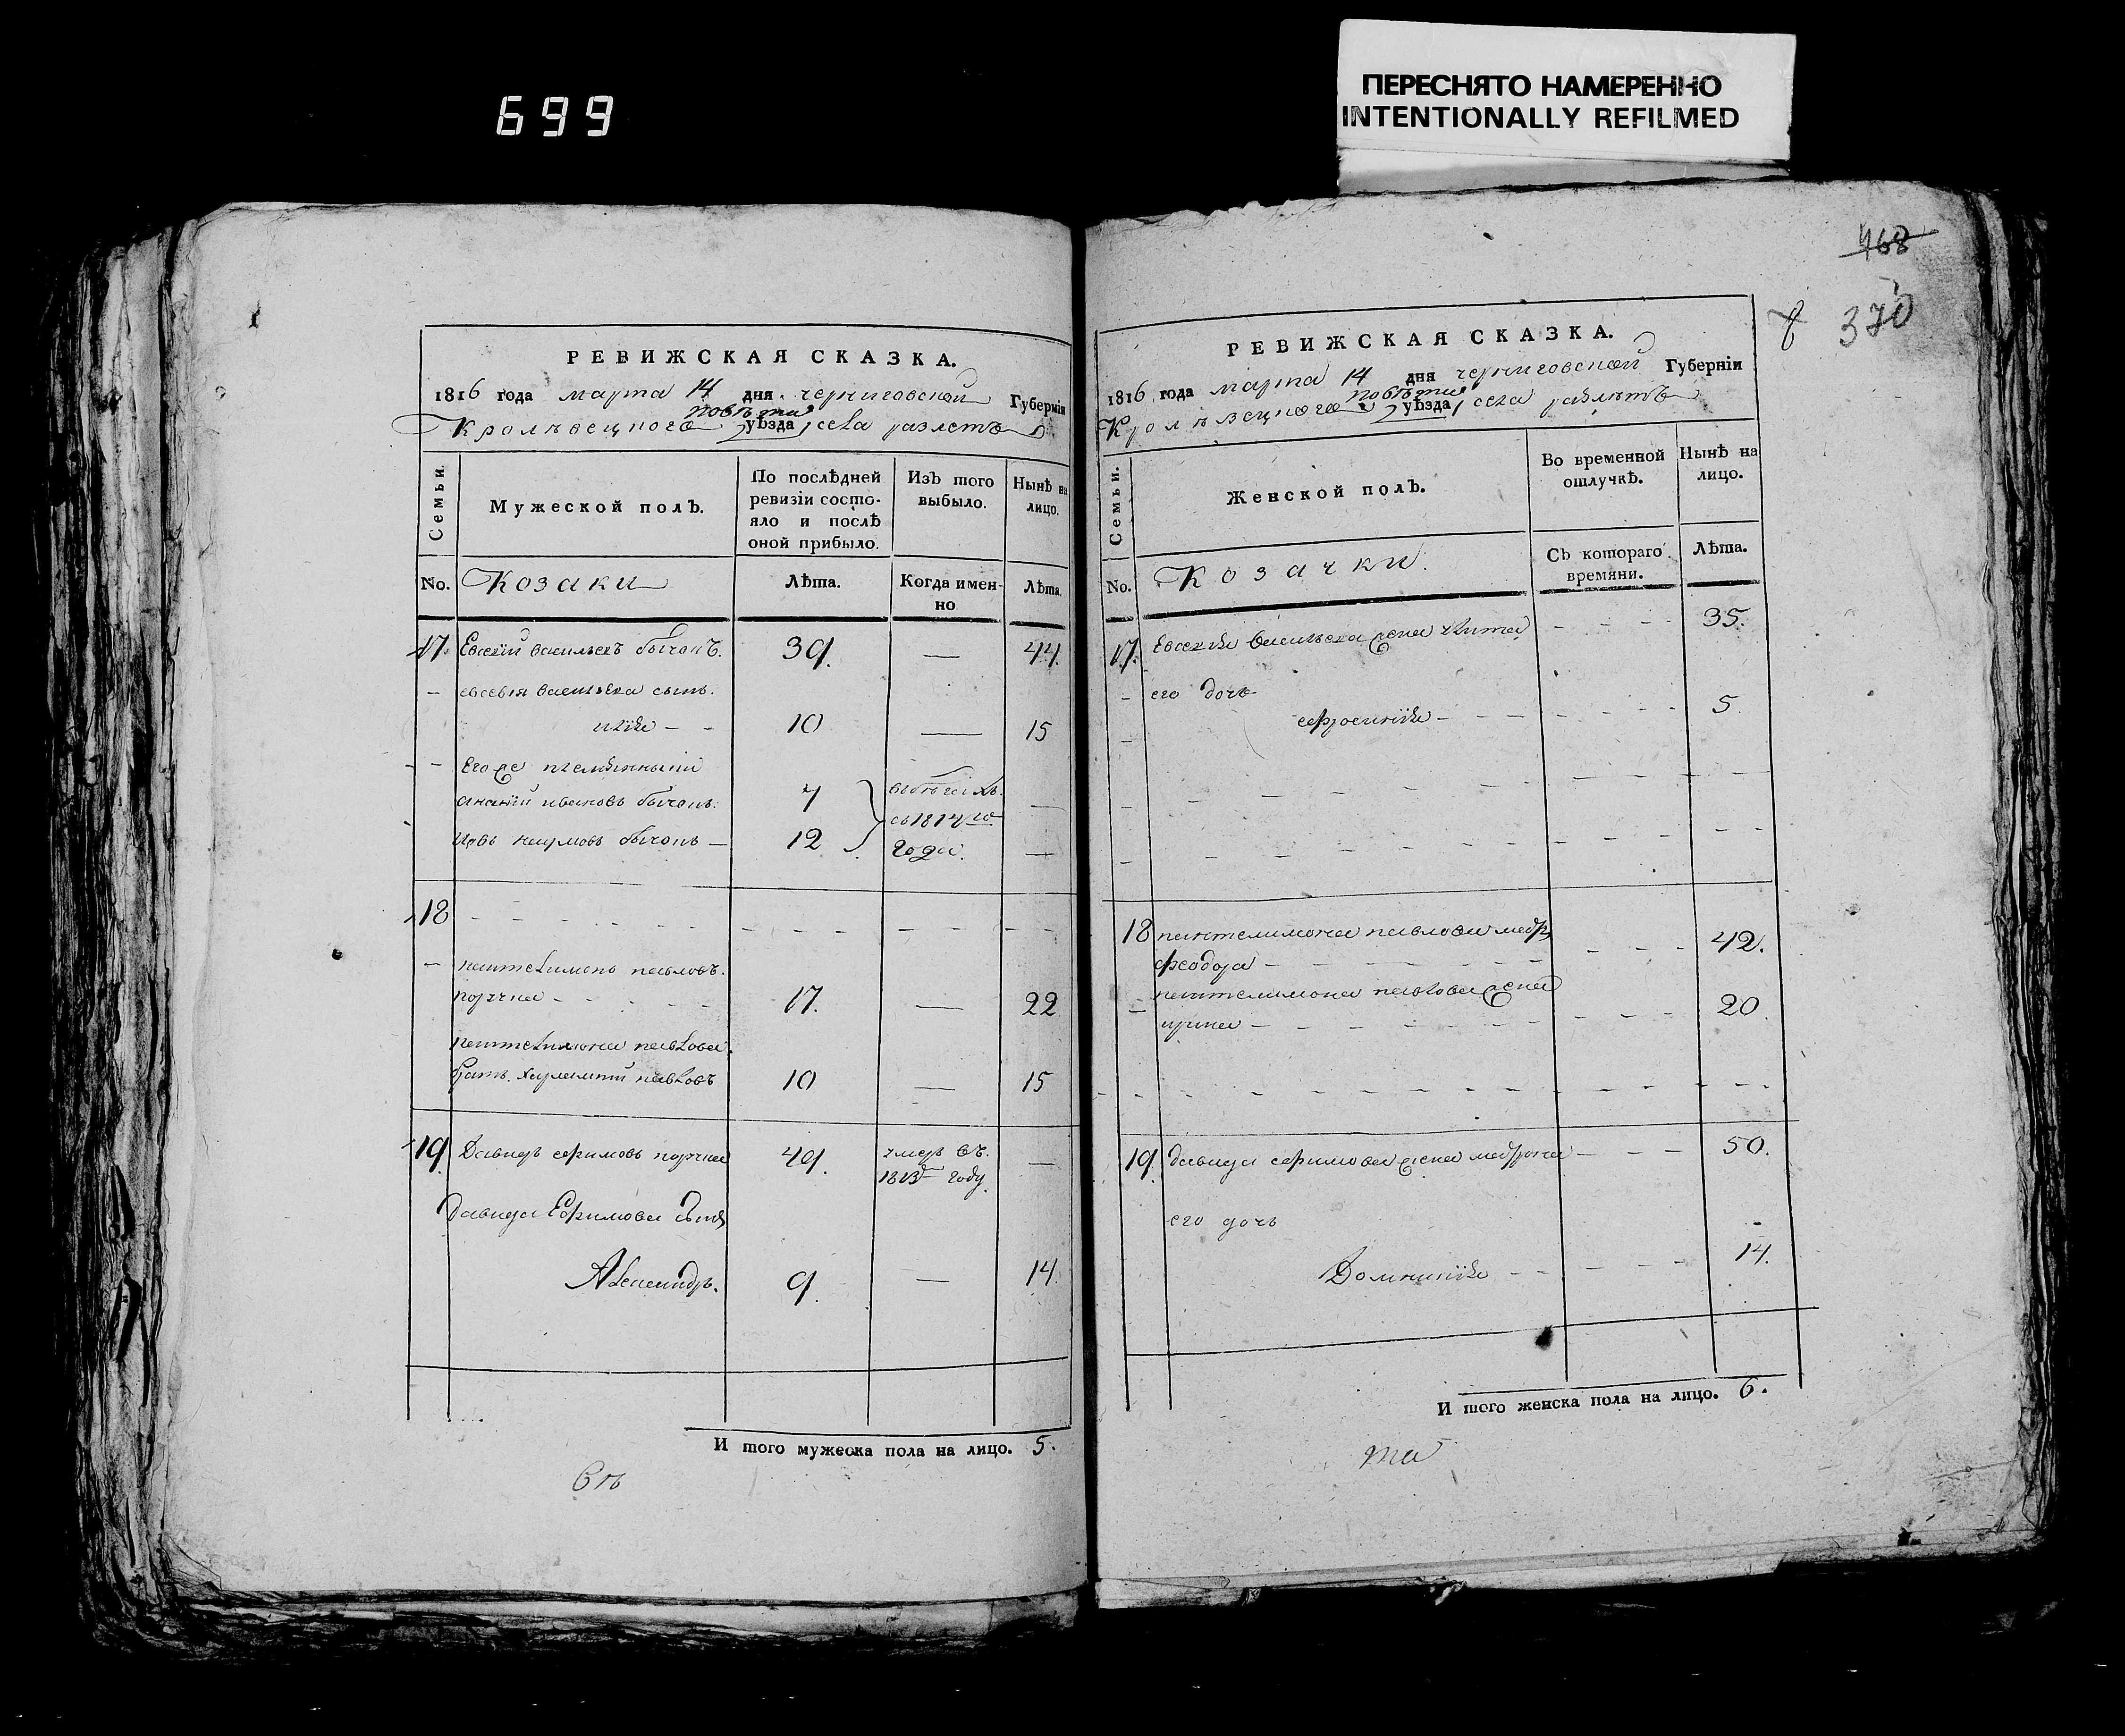 699
ПЕРЕСНЯТО НАМЕРЕННО
INTENTIONALLY REFILMED
468
370
РЕВИЖСКАЯ СКАЗКА.
1816 года марта 14 дня черниговской Губерніи
повѣта
Кролѣвецкого уѣзда села разлетъ
Семьи.
Мужеской полъ.
По послѣдней ревизіи состояло и послѣ оной прибыло.
Изъ того выбыло.
Нынѣ на лицо.
No. Козаки Лѣта. Когда именно Лѣта.
17. Евсевій васильевъ 39. — 44.
— евсевія васильева сынъ.
илія — — 10 — 15
— Его же племянныки
ананій ивановъ 7 —
Іовъ наумовъ 12 —
съ 1814го
года.
18 – – – – – –
— пантелимонъ павловъ.
17. — 22
пантелимона павлова
братъ харлампій павловъ 10 — 15
19 Давидъ ефимовъ 49. умеръ въ. —
1813м году.
Давида Ефимова сынъ
Александръ. 9. — 14.
И того мужеска пола на лицо. 5.
РЕВИЖСКАЯ СКАЗКА.
1816 года марта 14 дня черниговской Губерніи
повѣта
Кролѣвецкого уѣзда села разлетъ
Семьи.
Женской полъ.
Во временной отлучкѣ.
Нынѣ на лицо.
No. Козачки. Съ котораго времяни. Лѣта.
17. Евсевія васильева жена – – – 35.
– его дочь
ефросинія – – – 5.
18 пантелимона павлова
феодора – – – 42.
– пантелимона павлова жена
ирина – – – 20.
19. Давида ефимова жена матрона – – – 50.
его дочь
Домникія – – – 14.
И того женска пола на лицо. 6.
та